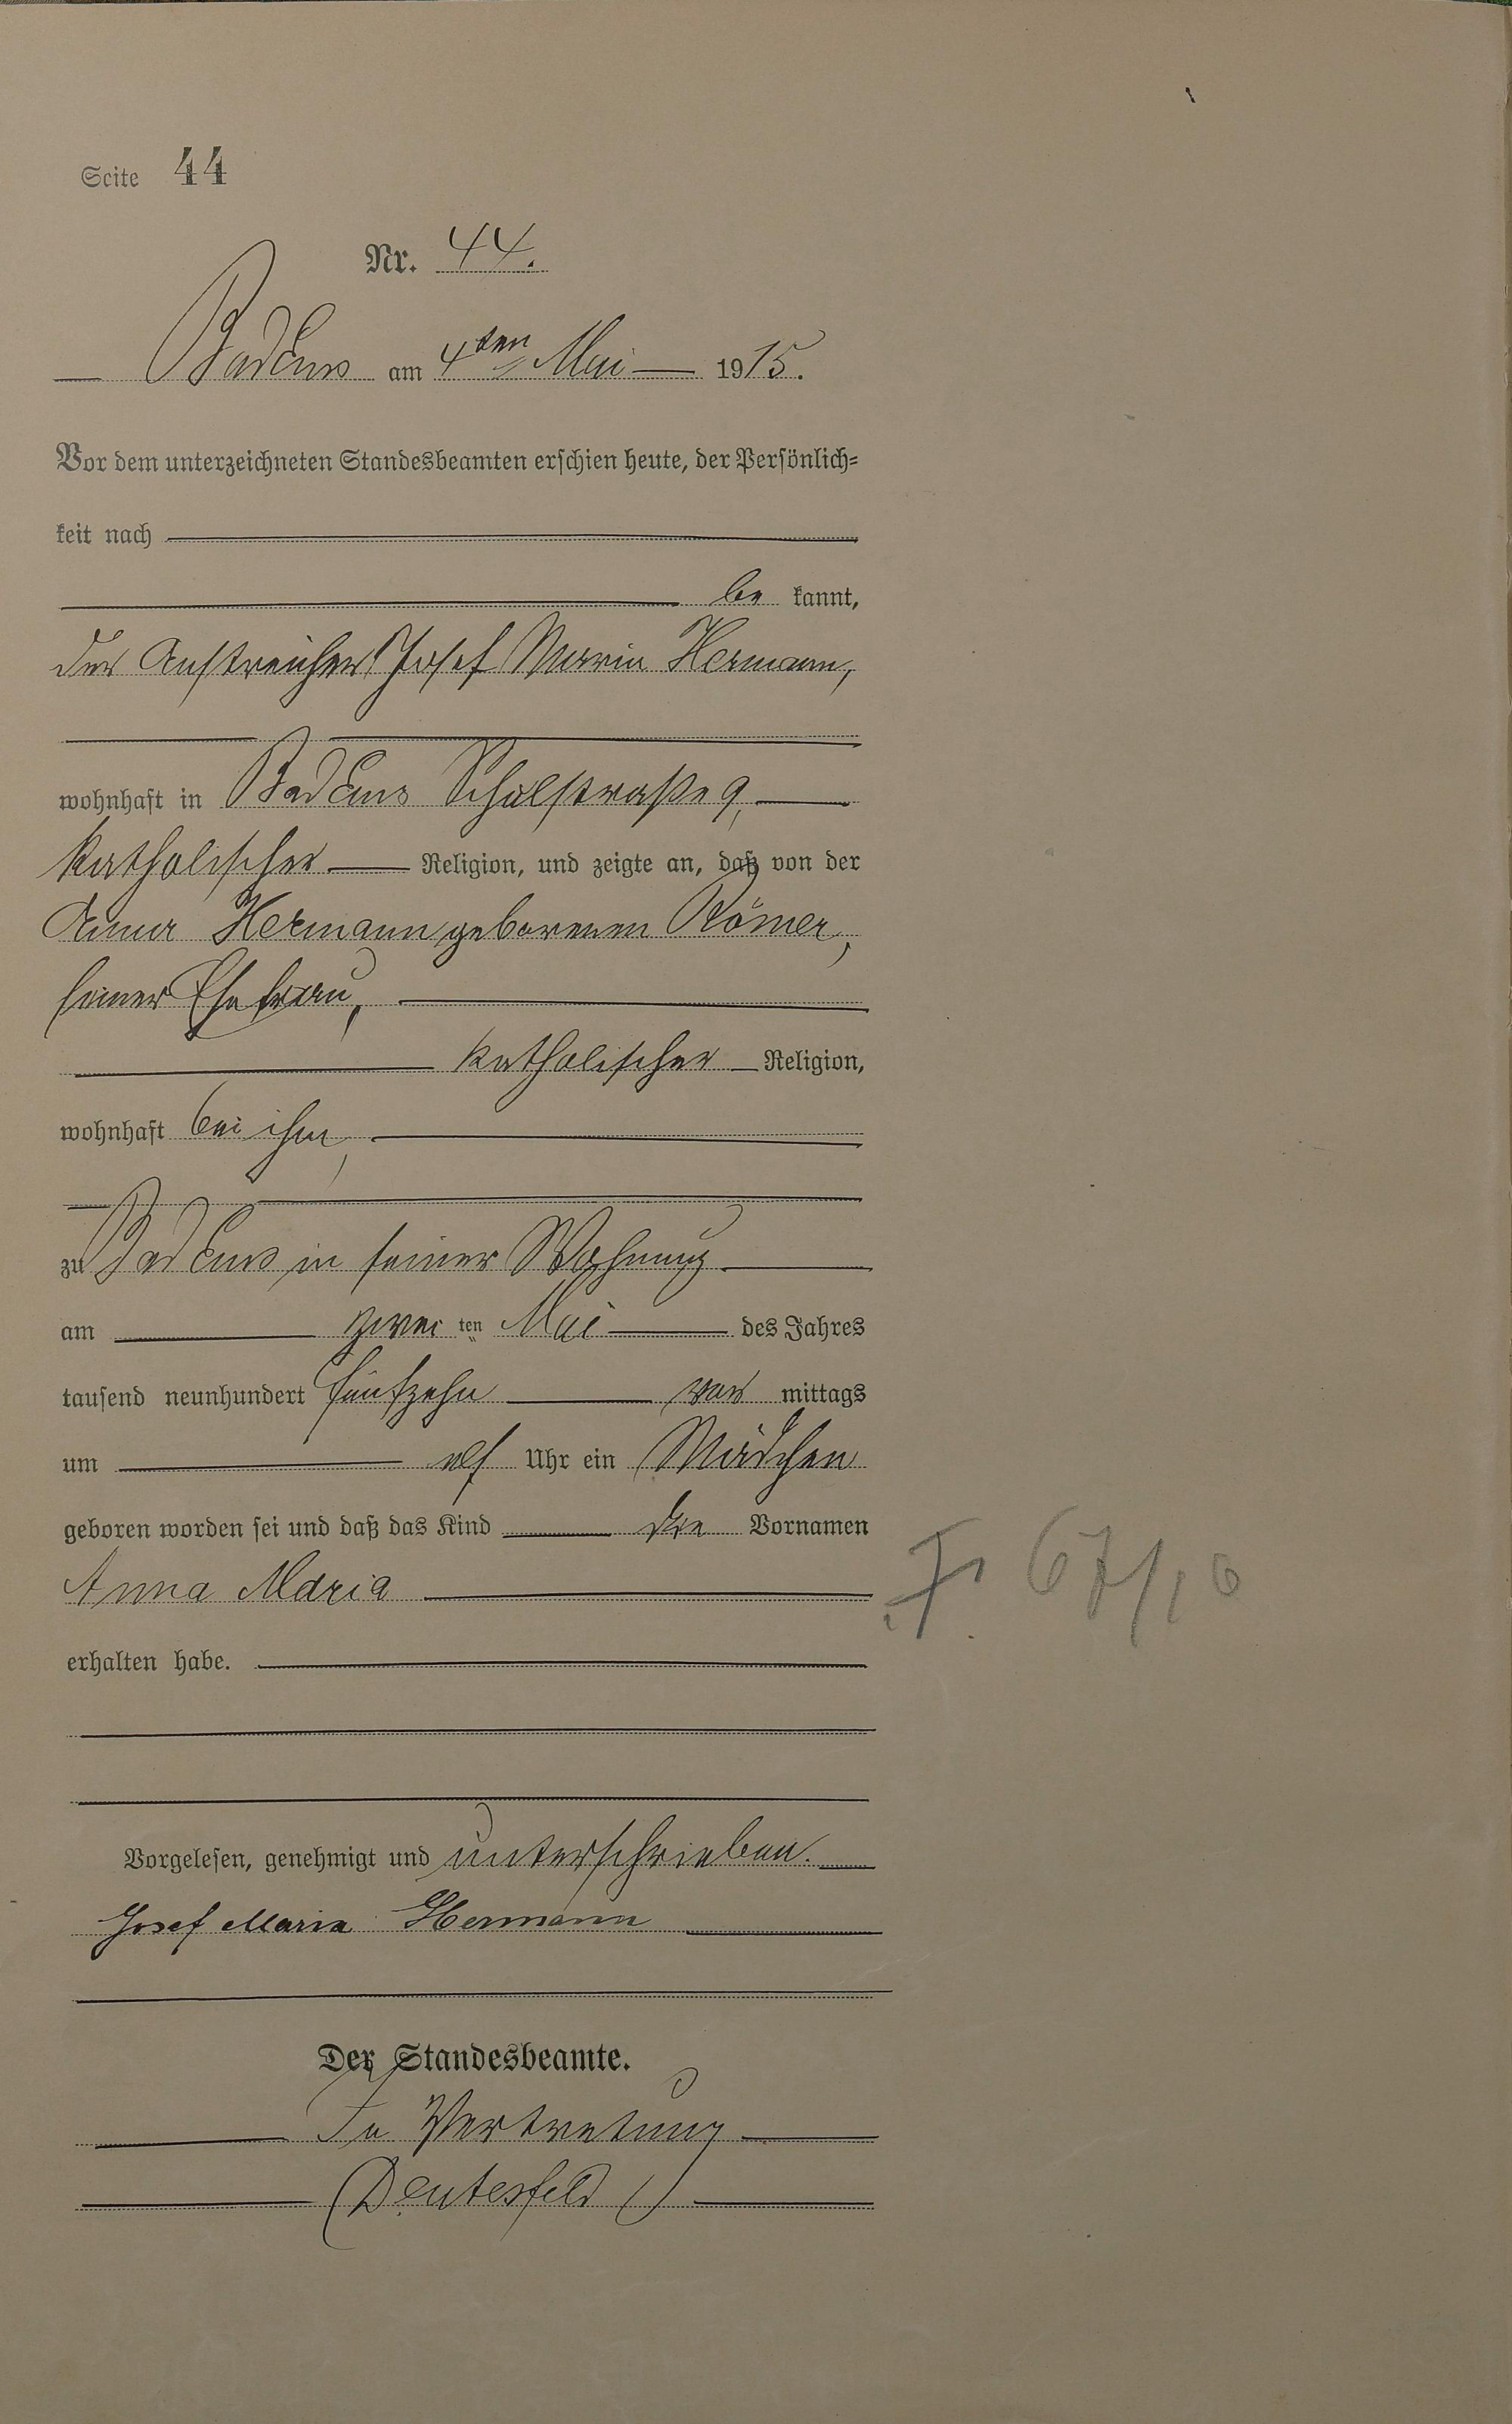 Seite 44
Nr. 44.
Bad Ems am 4ten Mai 1915.
Vor dem unterzeichneten Standesbeamten erschien heute, der Persönlich=
keit nach
be kannt,
der Anstreicher Josef Maria Hermann,
wohnhaft in Bad Ems Schulstraße 9,
katholischer Religion, und zeigte an, daß von der
Anna Hermann geborenen Römer,
seiner Ehefrau,
katholischer Religion,
wohnhaft bei ihm,
zu Bad Ems in seiner Wohnung
am zwei ten Mai des Jahres
tausend neunhundert fünfzehn vor mittags
um elf Uhr ein Mädchen
geboren worden sei und daß das Kind die Vornamen
Anna Maria
erhalten habe.
Vorgelesen, genehmigt und unterschrieben.
Josef Maria Hermann
Der Standesbeamte.
In Vertretung